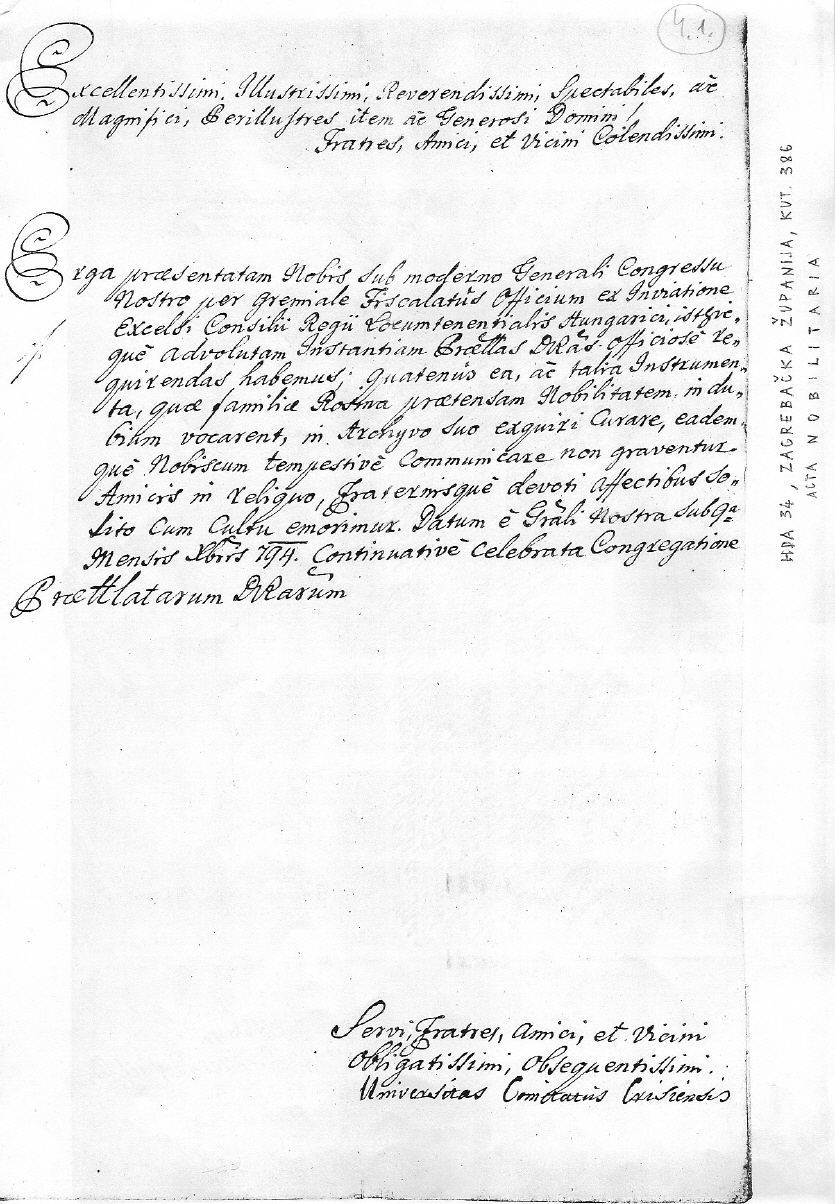 4.1.
Excellentissimi, Illustrissimi, Reverendissimi, Spectabiles, ac̄
Magnifici, Perillustres item ac̄ Generosi Domini!
Fratres, Amici, et Vicini Colendissimi.
Erga præsentatam Nobis sub moderno Generali Congressu
Nostro per gremiale Fiscalatûs Officium ex Inviatione
Excelsi Consilii Regii Locumtenentialis Hungarici, isthic=
què advolutam Instantiam Prætt̄las DV̄Rās Officiosè re=
quirendas habemus; quatenùs ea, ac̄ talia Instrumen=
ta, quæ familiæ Rostna prætensam Nobilitatem in du=
bium vocarent, in Archyvo suo exquiri Curare, eadem=
què Nobiscum tempestivè Communicare non graventur.
Amicis in reliquo, Fraternisquè devoti affectibus so=
lito Cum Cultu emorimur. Datum è Gr̄ali Nostra sub 9a
Mensis Xbr̄is 794. Continuativè celebrata Congregatione
Prættlatarum DVRarūm
Servi, Fratres, Amici, et Vicini
Obligatissimi, Obsequentissimi.
Universitas Comitatûs Crisiensis
HDA 34, ZAGREBAČKA ŽUPANIJA, KUT. 386
ACTA NOBILITARIA